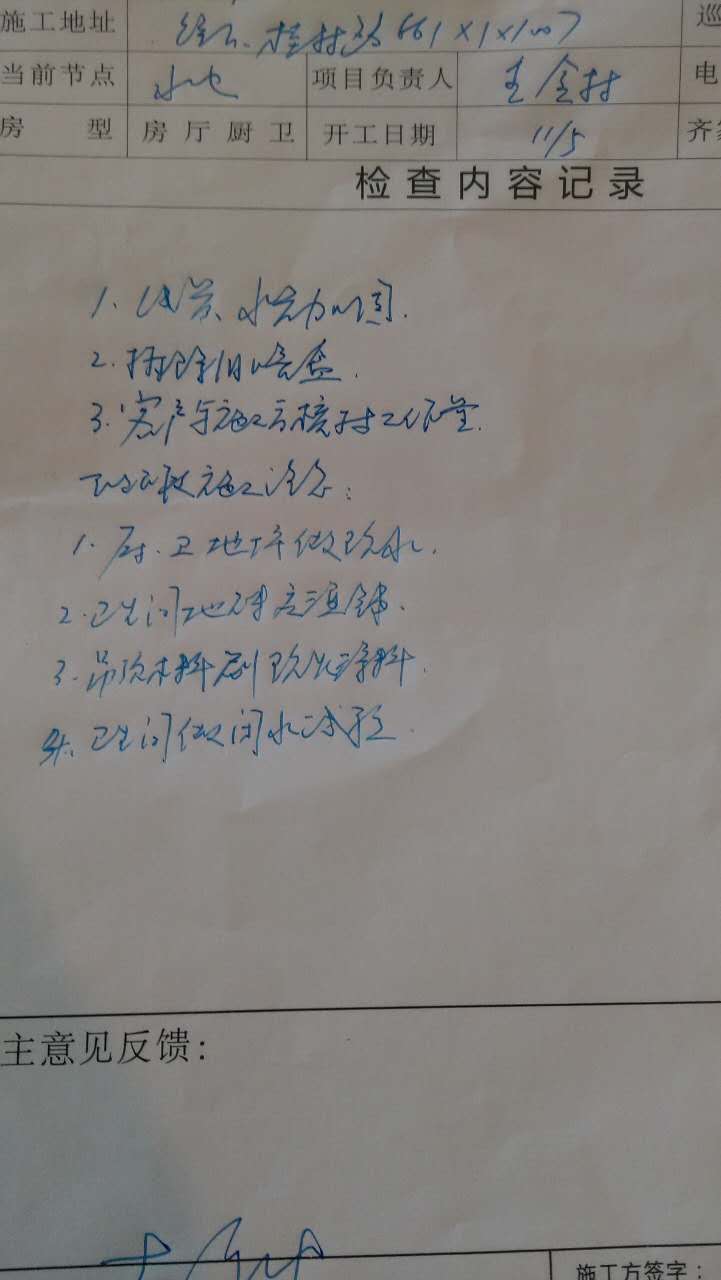 施工地址 徐汇.桂林路661×1×1007 巡
当前节点 水电 项目负责人 王金村 电
房 型 房 厅 厨 卫 开工日期 11/5 齐家
检查内容记录
1. 线管、水管加固.
2. 拆除旧暗盒.
3. 客户与施工方核对工作量.
下阶段施工注意:
1. 厨.卫地坪做防水.
2. 卫生间地砖应湿铺.
3. 吊顶木料刷防火涂料.
4. 卫生间做闭水试验.
主意见反馈:
施工方签字: